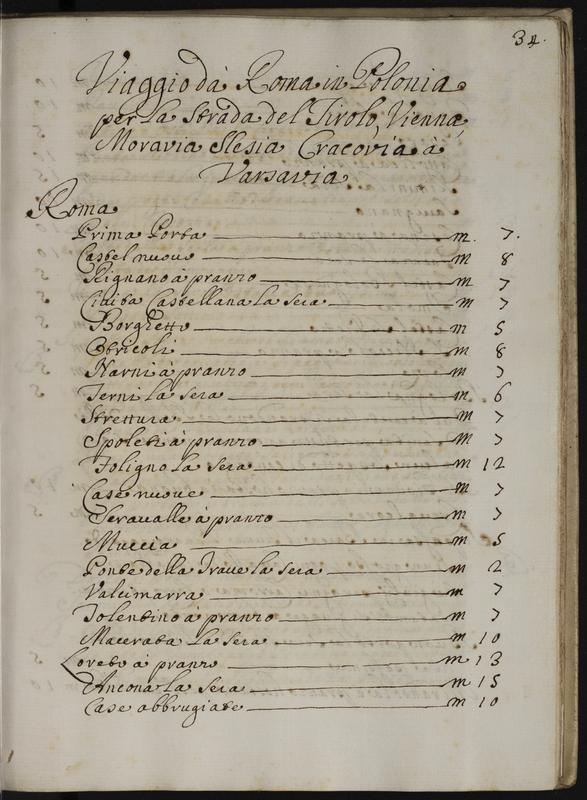 34.
Viaggio dà Roma in Polonia
per la strada del Tirolo, Vienna,
Moravia Slesia Cracovia à
Varsavia
Roma
Prima Porta m. 7.
Castel nuovo m 8
Rignano à pranzo m 7
Civita Castellana la sera m 7
Borghetto m 5
Otricoli m 8
Narni à pranzo m 7
Terni la sera m 6
Strettura m 7
Spoleti à pranzo m 7
Foligno la sera m 12
Case nuove m 7
Seravalle à pranzo m 7
Muccia m 5
Ponte della Trave la sera m 2
Valcimarra m 7
Tolentino à pranzo m 7
Macerata la sera m 10
Loreto à pranzo m 13
Ancona la sera m 15
Case abbrugiate m 10